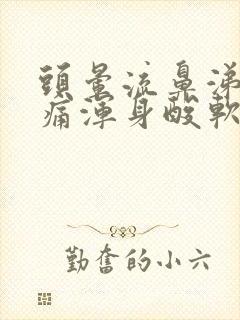 頭暈流鼻涕
痛渾身酸軟
勤奮的小六